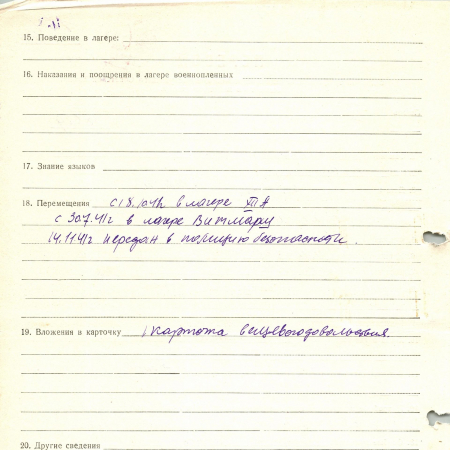 15. Поведение в лагере:
16. Наказания и поощрения в лагере военнопленных
17. Знание языков
18. Перемещения в лагере XII А
с 30.7.41г в лагере Витмариц
14.11.41г передан в полицию безопасности.
19. Вложения в карточку 1 картота вещевогодовольствия.
20. Другие сведения